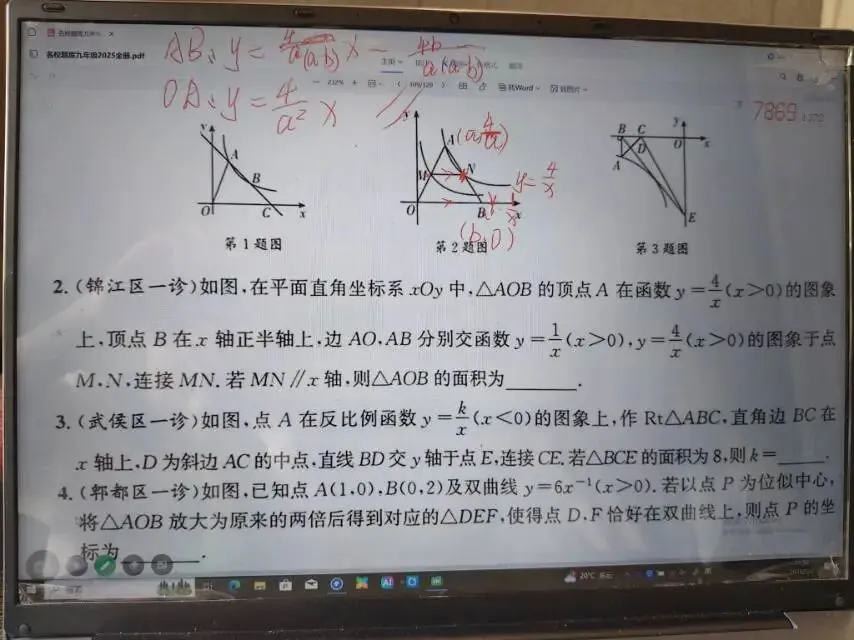 名校题库九年级2025全册.pdf
AB: y = 4/a(a-b) x - 4b/a(a-b)
OA: y = 4/a² x
232%
转Word
7869
y
A
B
O
C
x
第1题图
y
A(a, 4/a)
M
N
y=4/x
O
B
x
(b,0)
第2题图
y
B
C
O
x
A
D
E
第3题图
2.(锦江区一诊)如图,在平面直角坐标系 xOy 中,△AOB 的顶点 A 在函数 y=4/x(x>0)的图象
上,顶点 B 在 x 轴正半轴上,边 AO,AB 分别交函数 y=1/x(x>0),y=4/x(x>0)的图象于点
M,N,连接 MN. 若 MN∥x 轴,则△AOB 的面积为______.
3.(武侯区一诊)如图,点 A 在反比例函数 y=k/x(x<0)的图象上,作 Rt△ABC,直角边 BC 在
x 轴上,D 为斜边 AC 的中点,直线 BD 交 y 轴于点 E,连接 CE. 若△BCE 的面积为 8,则 k=_____.
4.(郫都区一诊)如图,已知点 A(1,0),B(0,2)及双曲线 y=6x⁻¹(x>0). 若以点 P 为位似中心,
将△AOB 放大为原来的两倍后得到对应的△DEF,使得点 D,F 恰好在双曲线上,则点 P 的坐
标为______.
20°C